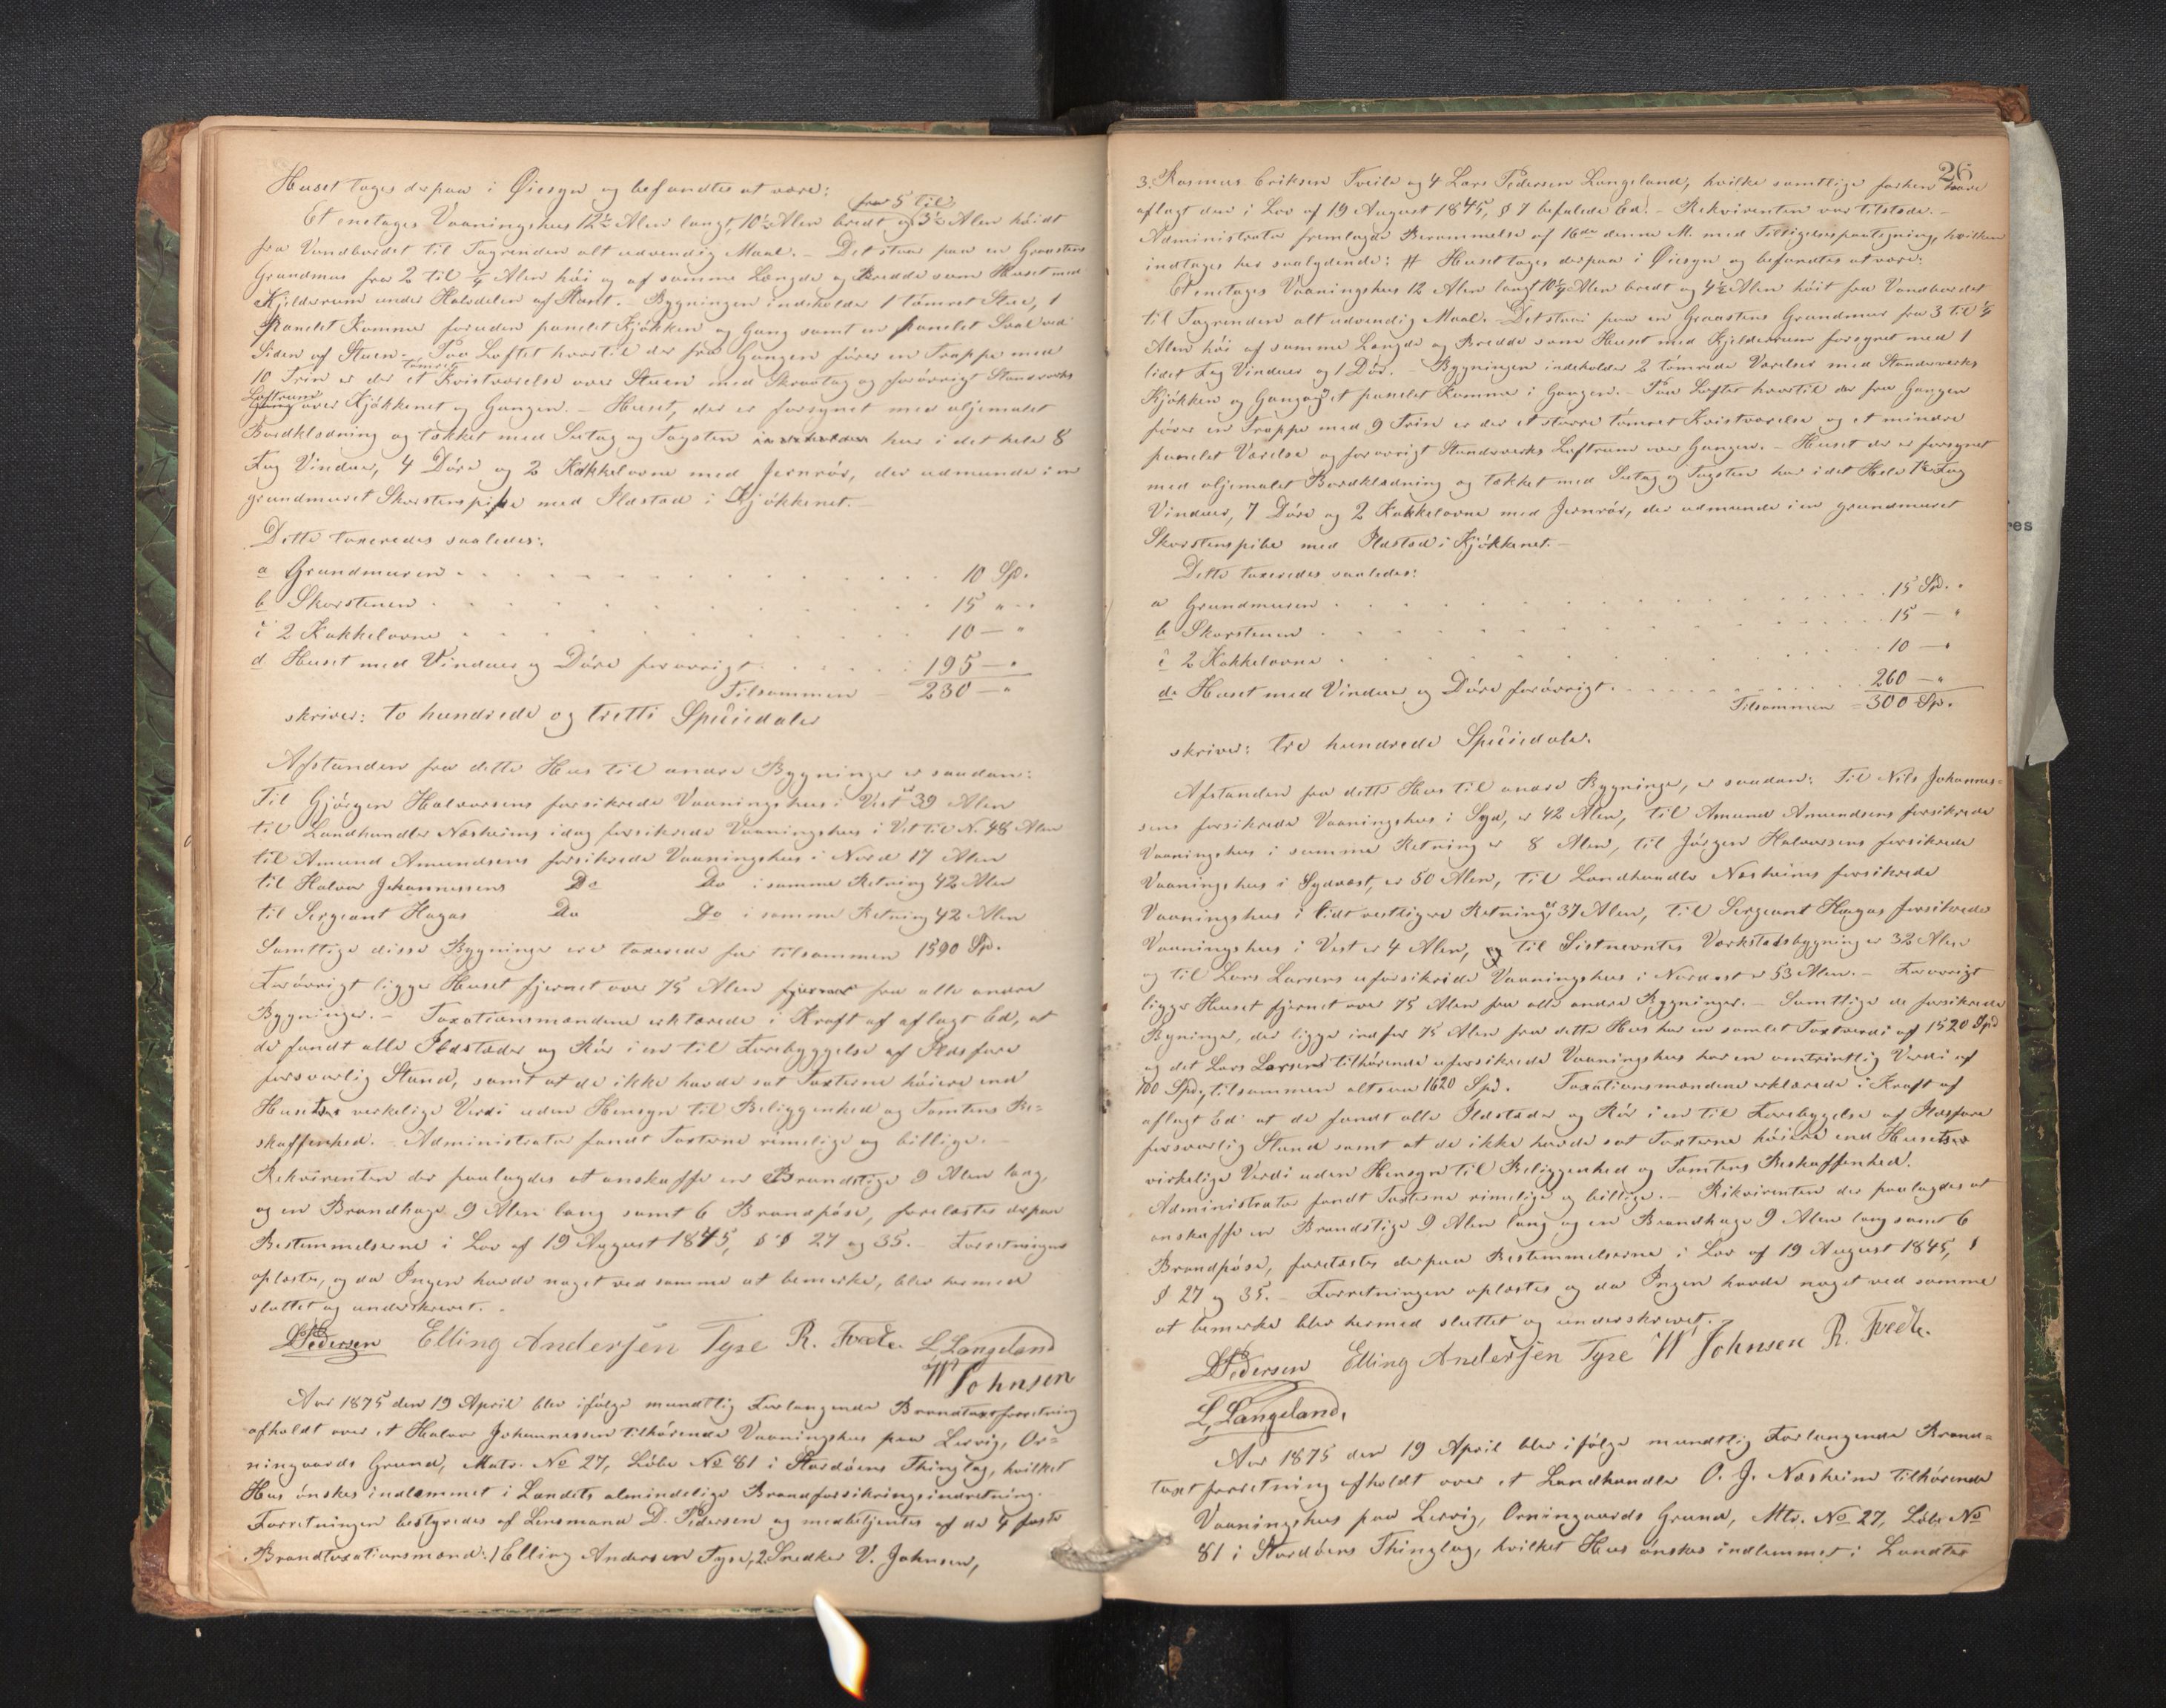 Huset toges derpaa i Øiesyn og befandtes at være:
fra 5 til
Et enetages Vaaningshus 12½ Alen langt, 10½ Alen bredt og 3½ Alen høidt
fra Vandbordet til Tagrenden alt udvendig Maal. – Det staar paa en Graastens
Grundmur fra 2 til ¼ Alen høi og af samme Længde og Bredde som Huset med
Kjelderrum under Halvdelen af samt. – Bygningen indeholder 1 tømret Stue, 1
panelet Kammer foruden panelet Kjøkken og Gang samt en panelet Sval ved
Siden af Stuen. – Paa Loftet hvortil der fra Gangen fører en Trappe med
tømret
10 Trin er der et Kvistværelse over Stuen med Skraatag og forøvrigt Standværks
Loftrum
over Kjøkkenet og Gangen. – Huset, der er forsynet med oljemalet
Bordklædning og tækket med Sutag og Tagsten har i det hele 8
Fag Vinduer, 4 Døre og 2 Kakkelovne med Jernrør, der udmunde i en
grundmuret Skorstenspibe med Ildsted i Kjøkkenet. –
Dette taxeredes saaledes:
a Grundmuren . . . 10 Sp.
b Skorstenen . . . 15 " "
c 2 Kakkelovne . . . 10 — "
d Huset med Vinduer og Døre forøvrigt . . . 195 — "
Tilsammen – 230 — "
skriver: to hundrede og tretti Speciedaler
Afstanden fra dette Hus til andre Bygninger er saadan:
Til Gjørgen Halvorsens forsikrede Vaaningshus i Vest er 39 Alen
til Landhandler Næsheims idag forsikrede Vaaningshus i Vest til N. 48 Alen
til Amund Amundsens forsikrede Vaaningshus i Nord 17 Alen
til Halvor Johannessens Do Do i samme Retning 42 Alen
til Sergeant Hagas Do Do i samme Retning 42 Alen
Samtlige disse Bygninger ere taxerede for tilsammen 1590 Sp.
Forøvrigt ligger Huset fjernet over 75 Alen fra alle andre
Bygninger. – Taxationsmændene erklærede i Kraft af aflagt Ed, at
de fandt alle Ildsteder og Rør i en til Forebyggelse af Ildsfare
forsvarlig Stand, samt at de ikke havde sat Taxterne høiere end
Husets verkelige Verdi uden Hensyn til Beliggenhed og Tomtens Be=
skaffenhed. – Administrator fandt Taxterne rimelige og billige. –
Rekvirenten der paalagdes at anskaffe en Brandstige 9 Alen lang,
og en Brandhage 9 Alen lang samt 6 Brandpøse, forelæstes derpaa
Bestemmelserne i Lov af 19 August 1845, § § 27 og 35. – Forretningen
oplæstes, og da Ingen havde noget ved samme at bemerke, blev hermed
sluttet og underskrevet. –
D Pedersen Elling Andersen Tyse R. Tvedte. L Langeland
W Johnsen
Aar 1875 den 19 April blev ifølge mundtlig Forlangende Brandtaxtforretning
afholdt over et Halvor Johannessen tilhørende Vaaningshus paa Lervig, Or=
ningaards Grund, Matr. No 27, Løbe No 81 i Stordøens Thinglag, hvilket
Hus ønskes indlemmet i Landets almindelige Brandforsikringsindretning.
Forretningen bestyredes af Lensmand D. Pedersen og medbetjentes af de 4 faste
Brandtaxationsmænd: 1 Elling Andersen Tyse, 2 Snedker V. Johnsen,
26
3. Rasmus Eriksen Tveite og 4 Lars Pedersen Langeland, hvilke samtlige forhen have
aflagt den i Lov af 19 August 1845, § 7 befalede Ed. – Rekvirenten var tilstede. –
Administrator fremlagde Berammelse af 16de denne M. med Tilsigelsespaategning, hvilken
indtages her saalydende: # Huset toges derpaa i Øiesyn og befandtes at være:
Et enetages Vaaningshus 12 Alen langt 10¼ Alen bredt og 4½ Alen høit fra Vandbordet
til Tagrenden alt udvendig Maal. – Det staar paa en Graastens Grundmur fra 3 til ¼
Alen høi af samme Længde og Bredde som Huset med Kjelderrum forsynet med 1
lidet Fag Vinduer og 1 Dør. – Bygningen indeholder 2 tømrede Værelser med Standværks
Kjøkken og Gang og et panelet Kammer i Gangen. – Paa Loftet hvortil der fra Gangen
fører en Trappe med 9 Trin er der et større tømret Kvistværelse og et mindre
panelet Værelse og forøvrigt Standværks Loftrum over Gangen. – Huset der er forsynet
med oljemalet Bordklædning og tækket med Sutag og Tagsten har i det Hele Fag
Vinduer, 7 Døre og 2 Kakkelovne med Jernrør, der udmunde i en grundmuret
Skorstenspibe med Ildsted i Kjøkkenet. –
Dette taxeredes saaledes:
a Grundmuren . . . 15 Sp. "
b Skorstenen . . . 15 — "
c 2 Kakkelovne . . . 10 — "
d. Huset med Vinduer og Døre forøvrigt . . . 260 — "
Tilsammen = 300 Sp.
skriver: tre hundrede Speciedaler.
Afstanden fra dette Hus til andre Bygninger, er saadan: Til Nils Johannes=
sens forsikrede Vaaningshus i Syd, er 42 Alen, til Amund Amundsens forsikrede
Vaaningshus i samme Retning er 8 Alen, til Jørgen Halvorsens forsikrede
Vaaningshus i Sydvest, er 50 Alen, til Landhandler Næsheims forsikrede
Vaaningshus i lidt vestligere Retning er 37 Alen, til Sergeant Hagas forsikrede
Vaaningshus i Vest er 4 Alen, og til Sistnevntes Værkstedsbygning er 32 Alen
og til Lars Larsens uforsikrede Vaaningshus i Nordost er 53 Alen. – Forøvrigt
ligger Huset fjernet over 75 Alen fra alle andre Bygninger. – Samtlige de forsikrede
Bygninger, der ligge indfor 75 Alen fra dette Hus har en samlet Taxtverdi af 1520 Spd
og det Lars Larsens tilhørende uforsikrede Vaaningshus har en omtrintlig Verdi af
100 Spd, tilsammen altsaa 1620 Spd. Taxationsmændene erklærede i Kraft af
aflagt Ed at de fandt alle Ildsteder og Rør i en til Forebygelse af Ildsfare
forsvarlig Stand samt at de ikke havde sat Taxterne høiere end Husets
virkelige Verdi uden Hensyn til Beliggenhed og Tomtens Beskaffenhed.
Administrator fandt Taxterne rimelige og billige. – Rikvirenten der paalagdes at
anskaffe en Brandstige 9 Alen lang og en Brandhage 9 Alen lang samt 6
Brandpøse, forelæstes derpaa Bestemmelserne i Lov af 19 August 1845, §
§ 27 og 35. – Forretningen oplæstes og da Ingen havde noget ved samme
at bemerke blev hermed sluttet og underskrevet.
D Pedersen Elling Andersen Tyse W Johnsen R. Tvedte.
L, Langeland,
Aar 1875 den 19 April blev ifølge mundtlig Forlangende Brand=
taxtforretning afholdt over et Landhandler O. J. Næsheim tilhørende
Vaaningshus paa Lervig, Orningaards Grund, Mtr. No 27, Løbe No
81 i Stordøens Thinglag, hvilket Hus ønskes indlemmet i Landets
res